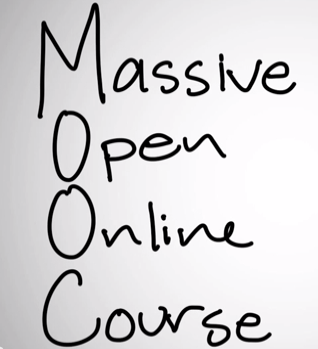 Massive
Open
Online
Course